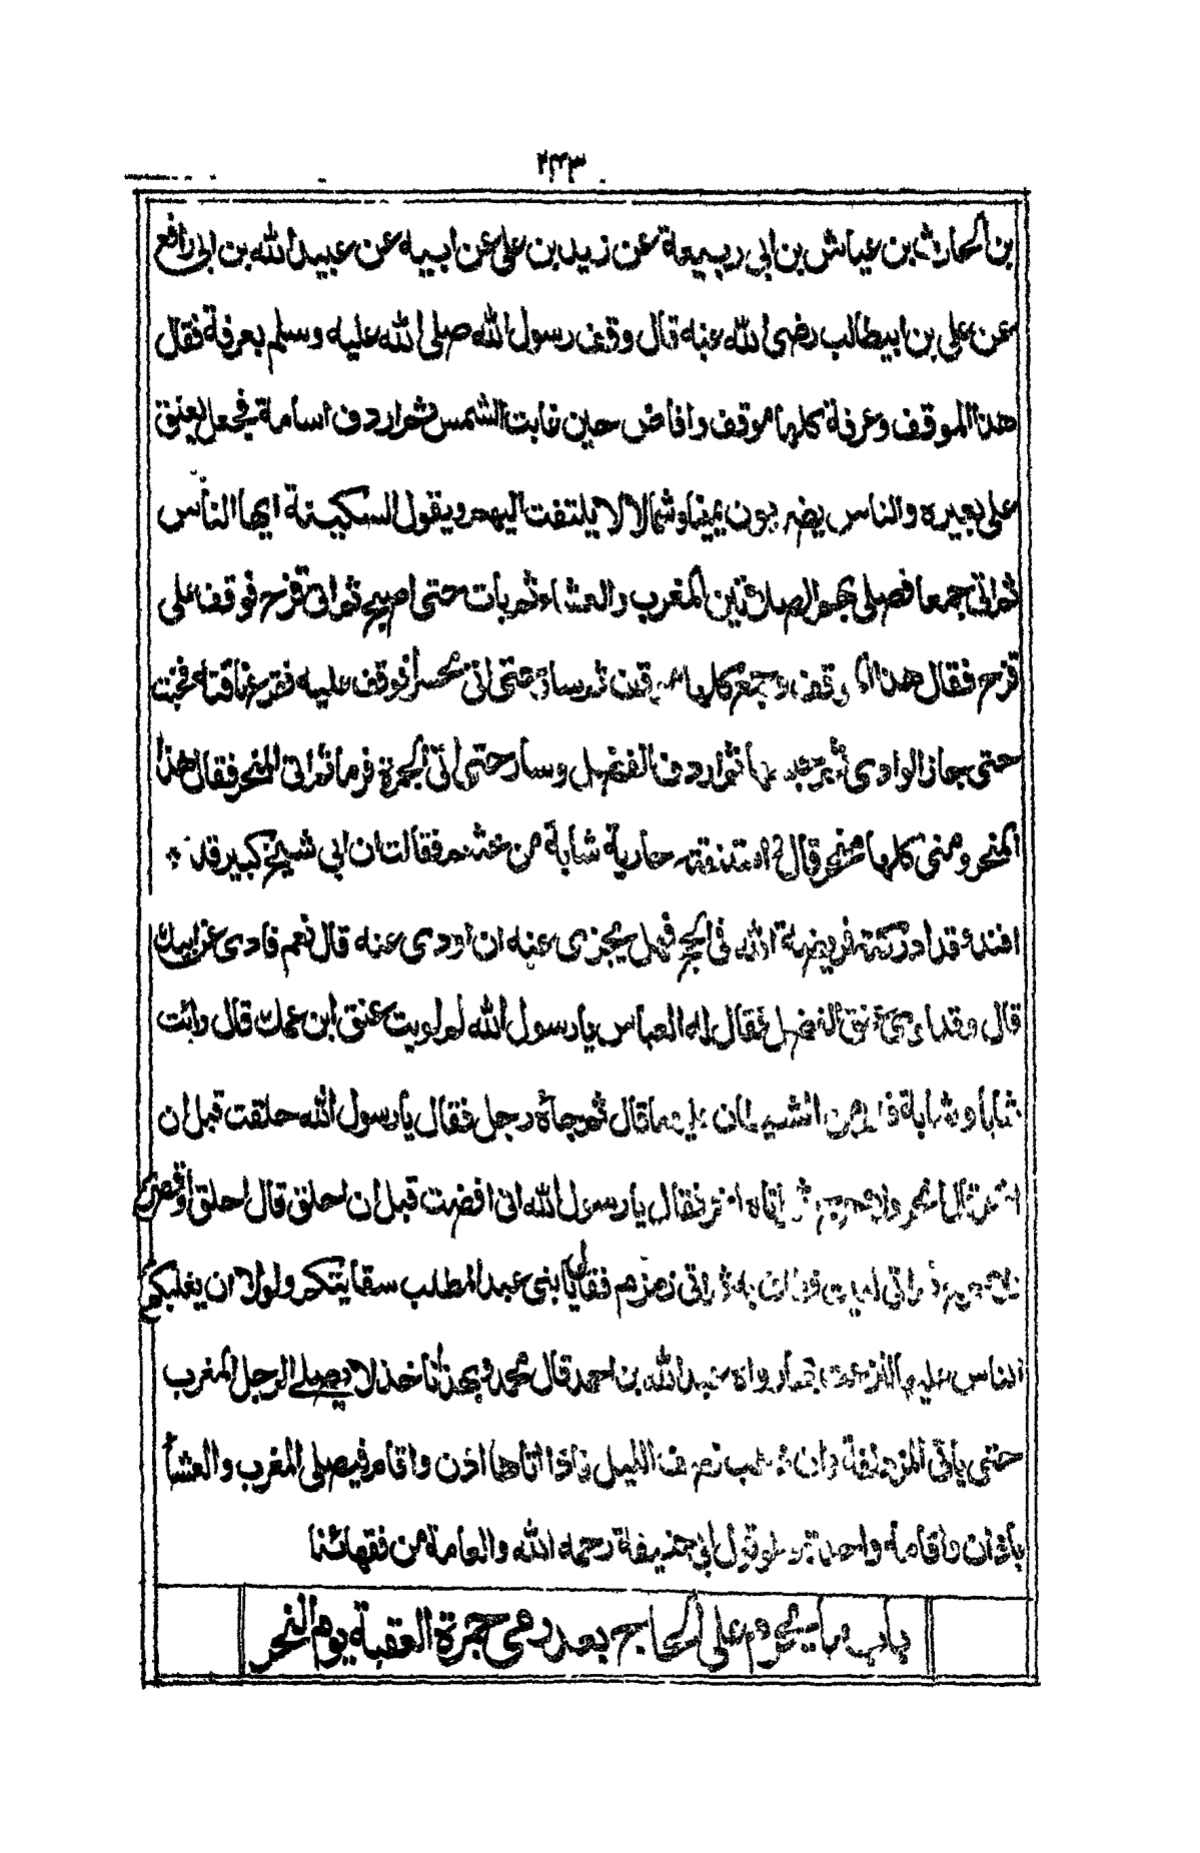 ٢٤٣
بن الحارث بن عياش بن ابي ربيعة عن زيد بن علي عن ابيه عن عبيد الله بن ابي رافع
عن علي بن ابيطالب رضي الله عنه قال وقف رسول الله صلى الله عليه وسلم بعرفة فقال
هذا الموقف وعرفة كلها موقف وافاض حين غابت الشمس ثم اردف اسامة فجعل يعنق
على بعيره والناس يضربون يمينا وشمالا لا يلتفت اليهم ويقول السكينة ايها الناس
ثم اتى جمعا فصلى بهم الصلاتين المغرب والعشاء ثم بات حتى اصبح ثم اتى قزح فوقف على
قزح فقال هذا الموقف وجمع كلها موقف ثم سار حتى اتى محسرا فوقف عليه فقرع ناقته فخبت
حتى جاز الوادي ثم حبسها ثم اردف الفضل وسار حتى اتى الجمرة فرماها ثم اتى المنحر فقال هذا
المنحر ومنى كلها منحر قال واستفتته جارية شابة من خثعم فقالت ان ابي شيخ كبير قد
افند وقد ادركته فريضة الله في الحج فهل يجزى عنه ان اودي عنه قال نعم فادى عن ابيك
قال وقد لوى عنق الفضل فقال له العباس يا رسول الله لم لويت عنق ابن عمك قال رايت
شابا وشابة فلم امن الشيطان عليهما قال ثم جاءه رجل فقال يا رسول الله حلقت قبل ان
انحر قال انحر ولا حرج ثم اتاه اخر فقال يا رسول الله اني افضت قبل ان احلق قال احلق او قصر
ولا حرج ثم اتى البيت فطاف به ثم اتى زمزم فقال يا بني عبد المطلب سقايتكم ولولا ان يغلبكم
الناس عليها لنزعت بها رواه عبد الله بن احمد قال محمد وبهذا ناخذ لا يصلي الرجل المغرب
حتى ياتي المزدلفة وان ذهب نصف الليل فاذا اتاها اذن واقام فيصلى المغرب والعشا
باذان واقامة واحدة وهو قول ابي حنيفة رحمه الله والعامة من فقهائنا
باب ما يحرم على الحاج بعد رمي جمرة العقبة يوم النحر